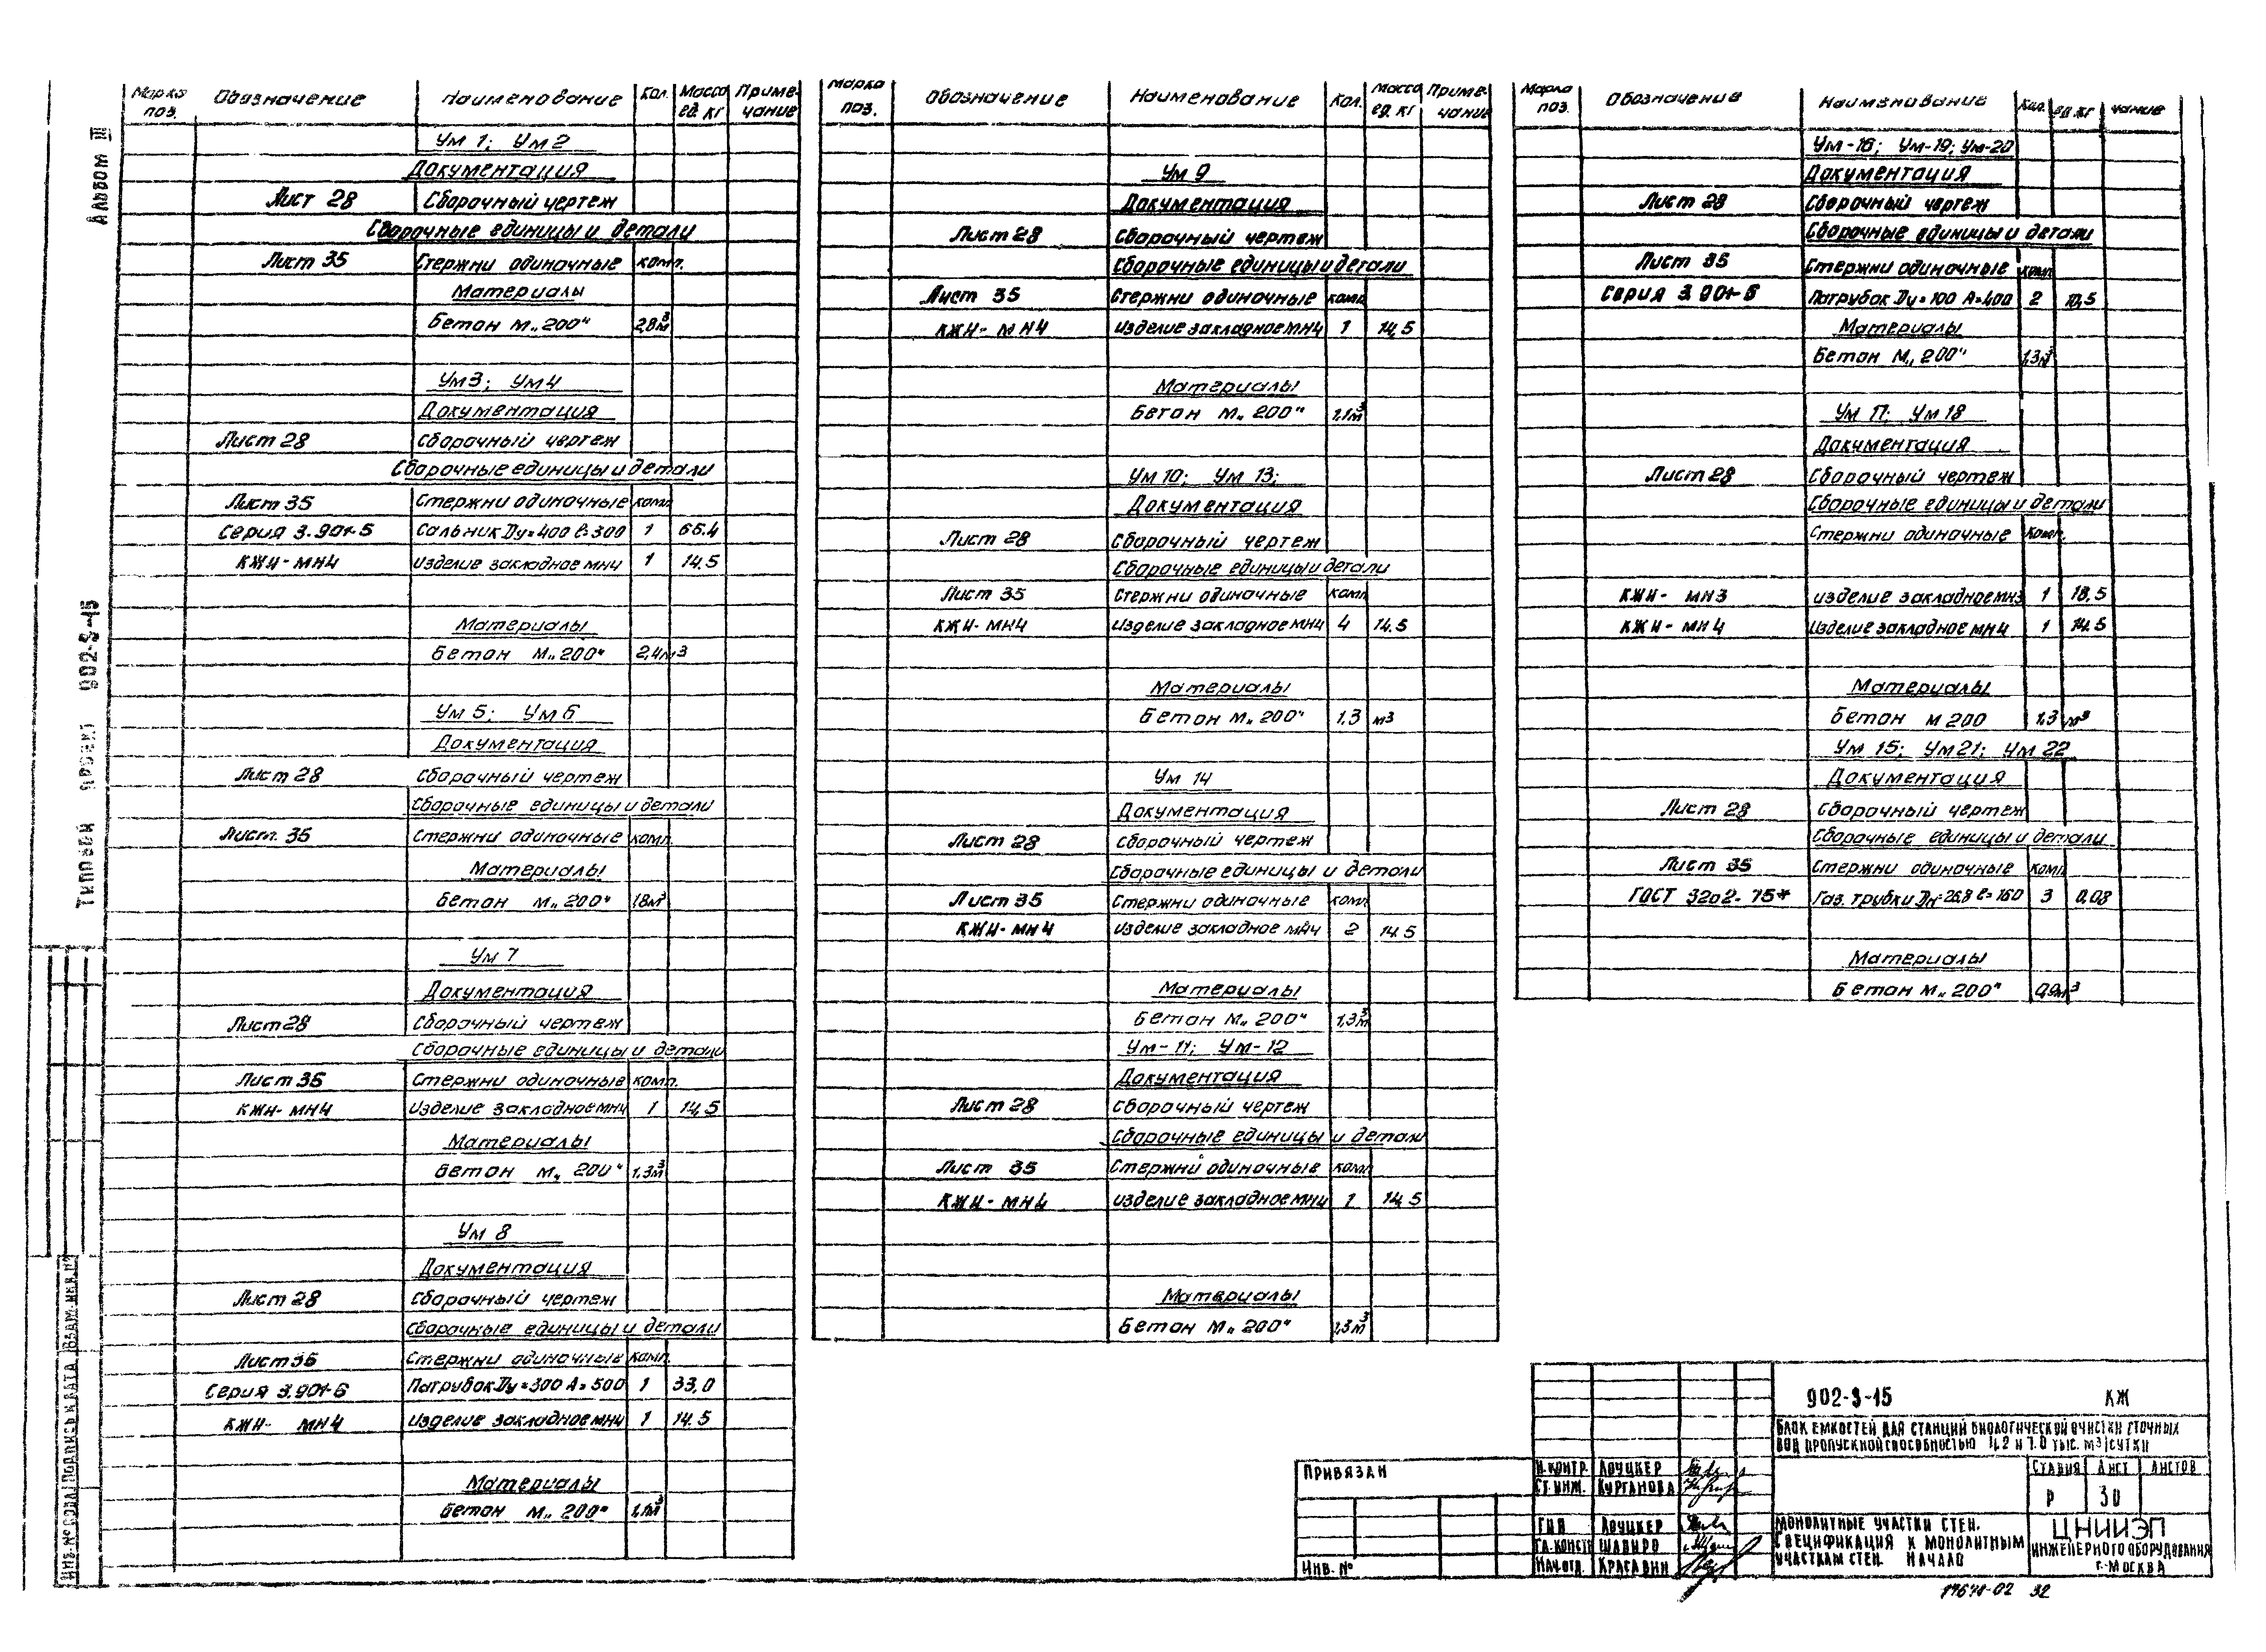 Альбом III
Типовой проект 902-3-15
Марка поз. Обозначение Наименование Кол. Масса ед. кг Примечание
Ум 1; Ум 2
Документация
Лист 28 Сборочный чертеж
Сборочные единицы и детали
Лист 35 Стержни одиночные комп.
Материалы
Бетон М„200" 2,8м³
Ум3; Ум4
Документация
Лист 28 Сборочный чертеж
Сборочные единицы и детали
Лист 35 Стержни одиночные комп.
Серия 3.901-5 Сальник Ду=400 ℓ=300 1 66.4
КЖИ-МН4 Изделие закладное МН4 1 14.5
Материалы
Бетон М„200" 2,4м3
Ум 5; Ум 6
Документация
Лист 28 Сборочный чертеж
Сборочные единицы и детали
Лист. 35 Стержни одиночные комп.
Материалы
Бетон М„200" 1,8м³
Ум 7
Документация
Лист 28 Сборочный чертеж
Сборочные единицы и детали
Лист 35 Стержни одиночные комп.
КЖИ-МН4 Изделие закладное МН4 1 14,5
Материалы
Бетон М„200" 1,3м³
Ум 8
Документация
Лист 28 Сборочный чертеж
Сборочные единицы и детали
Лист 35 Стержни одиночные комп.
Серия 3.901-6 Патрубок Ду=300 А=500 1 33,0
КЖИ- МН4 Изделие закладное МН4 1 14.5
Материалы
Бетон М„200" 1,1м³
Марка поз. Обозначение Наименование Кол. Масса ед. кг Примечание
Ум 9
Документация
Лист 28 Сборочный чертеж
Сборочные единицы и детали
Лист 35 Стержни одиночные комп.
КЖИ-МН4 Изделие закладное МН4 1 14,5
Материалы
Бетон М„200" 1,1м³
Ум 10; Ум 13;
Документация
Лист 28 Сборочный чертеж
Сборочные единицы и детали
Лист 35 Стержни одиночные комп
КЖИ-МН4 Изделие закладное МН4 4 14.5
Материалы
Бетон М„200" 1,3 м3
Ум 14
Документация
Лист 28 Сборочный чертеж
Сборочные единицы и детали
Лист 35 Стержни одиночные комп
КЖИ-МН4 Изделие закладное МН4 2 14.5
Материалы
Бетон М„200" 1,3м³
Ум-11; Ум-12
Документация
Лист 28 Сборочный чертеж
Сборочные единицы и детали
Лист 35 Стержни одиночные комп
КЖИ-МН4 Изделие закладное МН4 1 14,5
Материалы
Бетон М„200" 1,3м³
Марка поз. Обозначение Наименование Кол. ед кг чание
Ум-16; Ум-19; Ум-20
Документация
Лист 28 Сборочный чертеж
Сборочные единицы и детали
Лист 35 Стержни одиночные комп
Серия 3.901-5 Патрубок Ду=100 А=400 2 10,5
Материалы
Бетон М„200" 1,3м³
Ум 17; Ум 18
Документация
Лист 28 Сборочный чертеж
Сборочные единицы и детали
Стержни одиночные комп.
КЖИ- МН3 Изделие закладное МН3 1 18,5
КЖИ-МН4 Изделие закладное МН4 1 14.5
Материалы
Бетон М 200 1,3 м³
Ум 15; Ум 21; Ум 22
Документация
Лист 28 Сборочный чертеж
Сборочные единицы и детали
Лист 35 Стержни одиночные комп
ГОСТ 3262-75* Газ. трубки Дн=26.8 ℓ=160 3 0,08
Материалы
Бетон М„200" 0,9м3
902-3-15 КЖ
Блок емкостей для станций биологической очистки сточных
вод пропускной способностью 4,2 и 7.0 тыс. м3/сутки
Привязан
Инв. №
Н.контр. Лоуцкер
Ст.инж. Курганова
ГИП Лоуцкер
Гл.констр Шапиро
Нач.отд. Красавин
Стадия Лист Листов
Р 30
Монолитные участки стен.
Спецификация к монолитным
участкам стен. Начало
ЦНИИЭП
инженерного оборудования
г. Москва
Инв. № подл. Подпись и дата Взам. инв. №
32